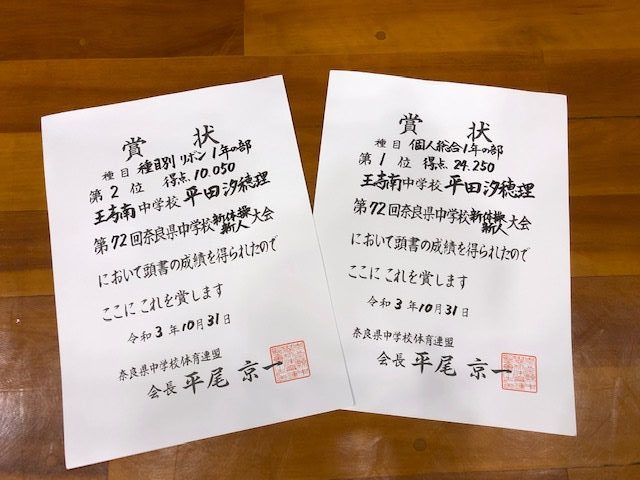 賞状
種目 種目別 リボン 1年の部
第2位 得点 10.050
王寺南中学校 平田汐穂理
第72回奈良県中学校新体操新人大会
において頭書の成績を得られたので
ここにこれを賞します
令和3年10月31日
奈良県中学校体育連盟
会長 平尾京一
賞状
種目 個人総合1年の部
第1位 得点 24.250
王寺南中学校 平田汐穂理
第72回奈良県中学校新体操新人大会
において頭書の成績を得られたので
ここにこれを賞します
令和3年10月31日
奈良県中学校体育連盟
会長 平尾京一